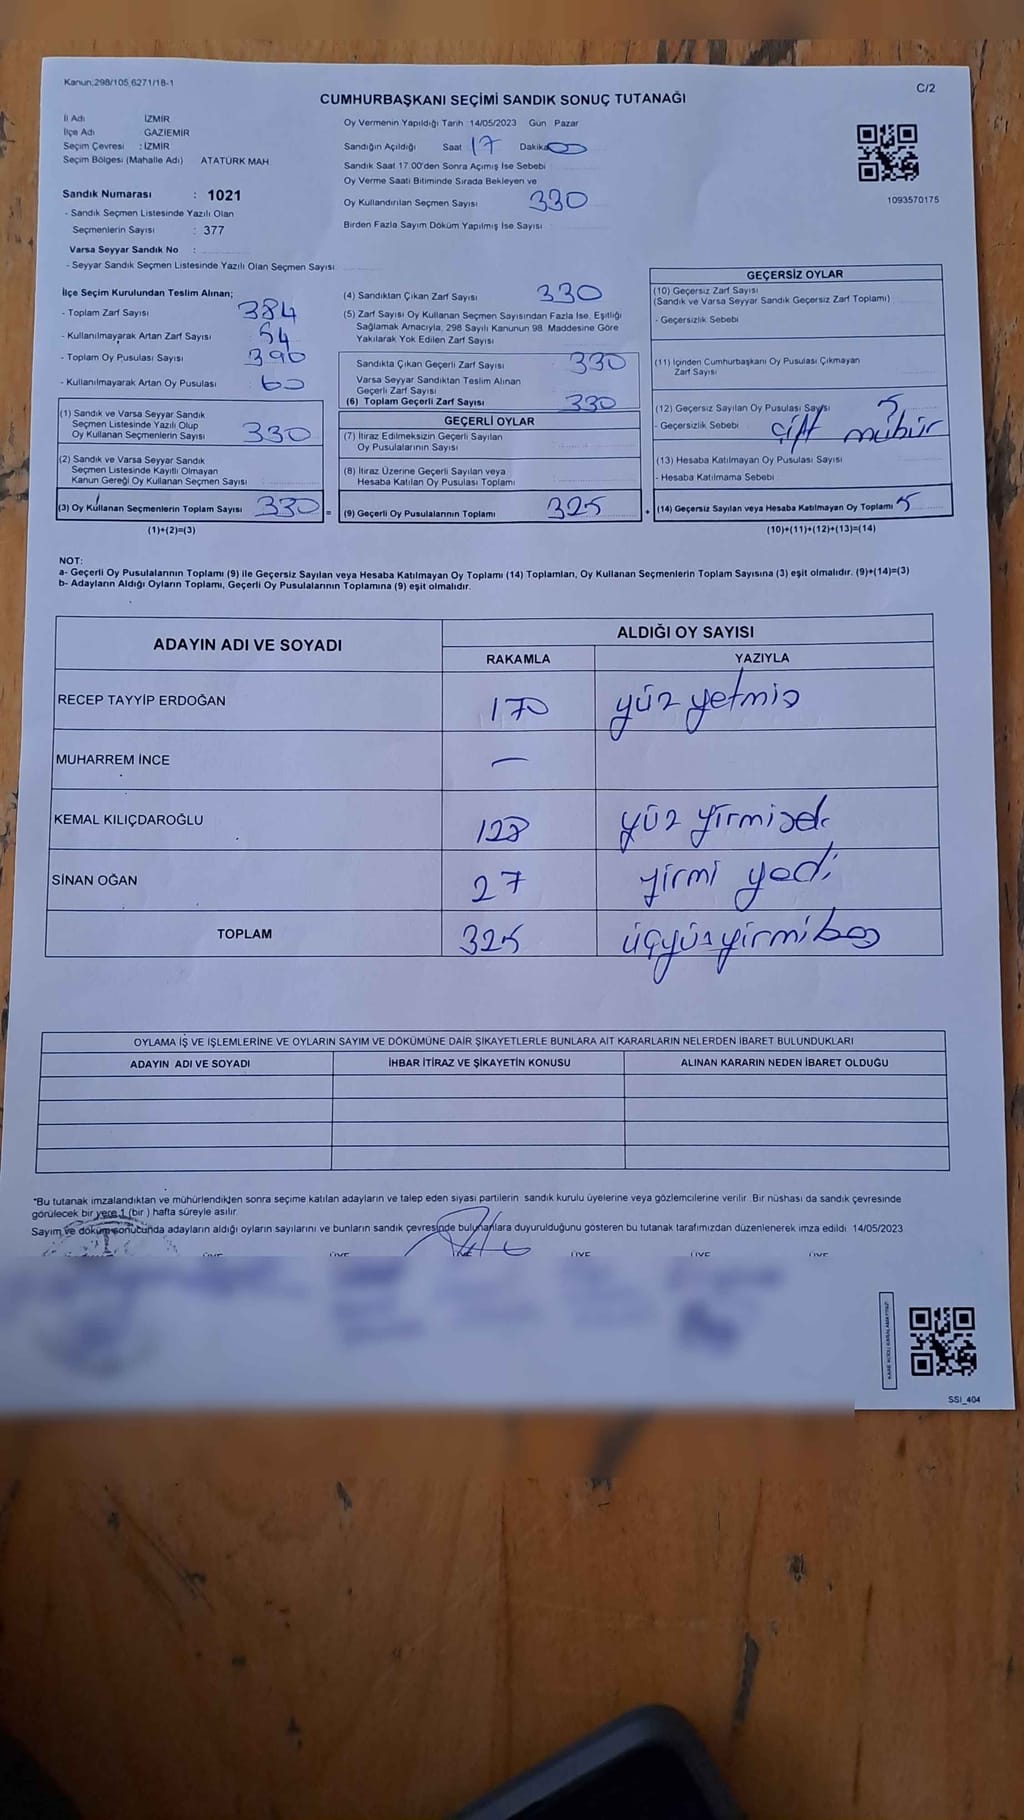 Kanun:298/105,6271/18-1
C/2
CUMHURBAŞKANI SEÇİMİ SANDIK SONUÇ TUTANAĞI
İl Adı İZMİR
İlçe Adı GAZİEMİR
Seçim Çevresi : İZMİR
Seçim Bölgesi (Mahalle Adı) ATATÜRK MAH
Sandık Numarası : 1021
- Sandık Seçmen Listesinde Yazılı Olan
Seçmenlerin Sayısı : 377
Varsa Seyyar Sandık No :
- Seyyar Sandık Seçmen Listesinde Yazılı Olan Seçmen Sayısı
Oy Vermenin Yapıldığı Tarih 14/05/2023 Gün Pazar
Sandığın Açıldığı Saat 17 Dakika 00
Sandık Saat 17.00'den Sonra Açımış İse Sebebi
Oy Verme Saati Bitiminde Sırada Bekleyen ve
Oy Kullandırılan Seçmen Sayısı 330
Birden Fazla Sayım Döküm Yapılmış İse Sayısı
1093570175
İlçe Seçim Kurulundan Teslim Alınan;
- Toplam Zarf Sayısı 384
- Kullanılmayarak Artan Zarf Sayısı 54
- Toplam Oy Pusulası Sayısı 390
- Kullanılmayarak Artan Oy Pusulası 60
(1) Sandık ve Varsa Seyyar Sandık
Seçmen Listesinde Yazılı Olup
Oy Kullanan Seçmenlerin Sayısı 330
(2) Sandık ve Varsa Seyyar Sandık
Seçmen Listesinde Kayıtlı Olmayan
Kanun Gereği Oy Kullanan Seçmen Sayısı
(3) Oy Kullanan Seçmenlerin Toplam Sayısı 330 =
(1)+(2)=(3)
(4) Sandıktan Çıkan Zarf Sayısı 330
(5) Zarf Sayısı Oy Kullanan Seçmen Sayısından Fazla İse, Eşitliği
Sağlamak Amacıyla, 298 Sayılı Kanunun 98. Maddesine Göre
Yakılarak Yok Edilen Zarf Sayısı
Sandıkta Çıkan Geçerli Zarf Sayısı 330
Varsa Seyyar Sandıktan Teslim Alınan
Geçerli Zarf Sayısı
(6) Toplam Geçerli Zarf Sayısı 330
GEÇERLİ OYLAR
(7) İtiraz Edilmeksizin Geçerli Sayılan
Oy Pusulalarının Sayısı
(8) İtiraz Üzerine Geçerli Sayılan veya
Hesaba Katılan Oy Pusulası Toplamı
(9) Geçerli Oy Pusulalarının Toplamı 325 +
GEÇERSİZ OYLAR
(10) Geçersiz Zarf Sayısı
(Sandık ve Varsa Seyyar Sandık Geçersiz Zarf Toplamı)
- Geçersizlik Sebebi
(11) İçinden Cumhurbaşkanı Oy Pusulası Çıkmayan
Zarf Sayısı
(12) Geçersiz Sayılan Oy Pusulası Sayısı 5
- Geçersizlik Sebebi çift mühür
(13) Hesaba Katılmayan Oy Pusulası Sayısı
- Hesaba Katılmama Sebebi
(14) Geçersiz Sayılan veya Hesaba Katılmayan Oy Toplamı 5
(10)+(11)+(12)+(13)=(14)
NOT:
a- Geçerli Oy Pusulalarının Toplamı (9) ile Geçersiz Sayılan veya Hesaba Katılmayan Oy Toplamı (14) Toplamları, Oy Kullanan Seçmenlerin Toplam Sayısına (3) eşit olmalıdır. (9)+(14)=(3)
b- Adayların Aldığı Oyların Toplamı, Geçerli Oy Pusulalarının Toplamına (9) eşit olmalıdır.
ADAYIN ADI VE SOYADI ALDIĞI OY SAYISI
RAKAMLA YAZIYLA
RECEP TAYYİP ERDOĞAN 170 yüz yetmiş
MUHARREM İNCE —
KEMAL KILIÇDAROĞLU 128 yüz yirmisek.
SİNAN OĞAN 27 yirmi yedi
TOPLAM 325 üçyüzyirmibeş
OYLAMA İŞ VE İŞLEMLERİNE VE OYLARIN SAYIM VE DÖKÜMÜNE DAİR ŞİKAYETLERLE BUNLARA AİT KARARLARIN NELERDEN İBARET BULUNDUKLARI
ADAYIN ADI VE SOYADI İHBAR İTİRAZ VE ŞİKAYETİN KONUSU ALINAN KARARIN NEDEN İBARET OLDUĞU
*Bu tutanak imzalandıktan ve mühürlendikten sonra seçime katılan adayların ve talep eden siyasi partilerin sandık kurulu üyelerine veya gözlemcilerine verilir. Bir nüshası da sandık çevresinde
görülecek bir yere 1 (bir ) hafta süreyle asılır.
Sayım ve döküm sonucunda adayların aldığı oyların sayılarını ve bunların sandık çevresinde bulunanlara duyurulduğunu gösteren bu tutanak tarafımızdan düzenlenerek imza edildi. 14/05/2023
ÜYE ÜYE ÜYE ÜYE ÜYE ÜYE
KARE KODU KARALAMAYINIZ!
SSI_404